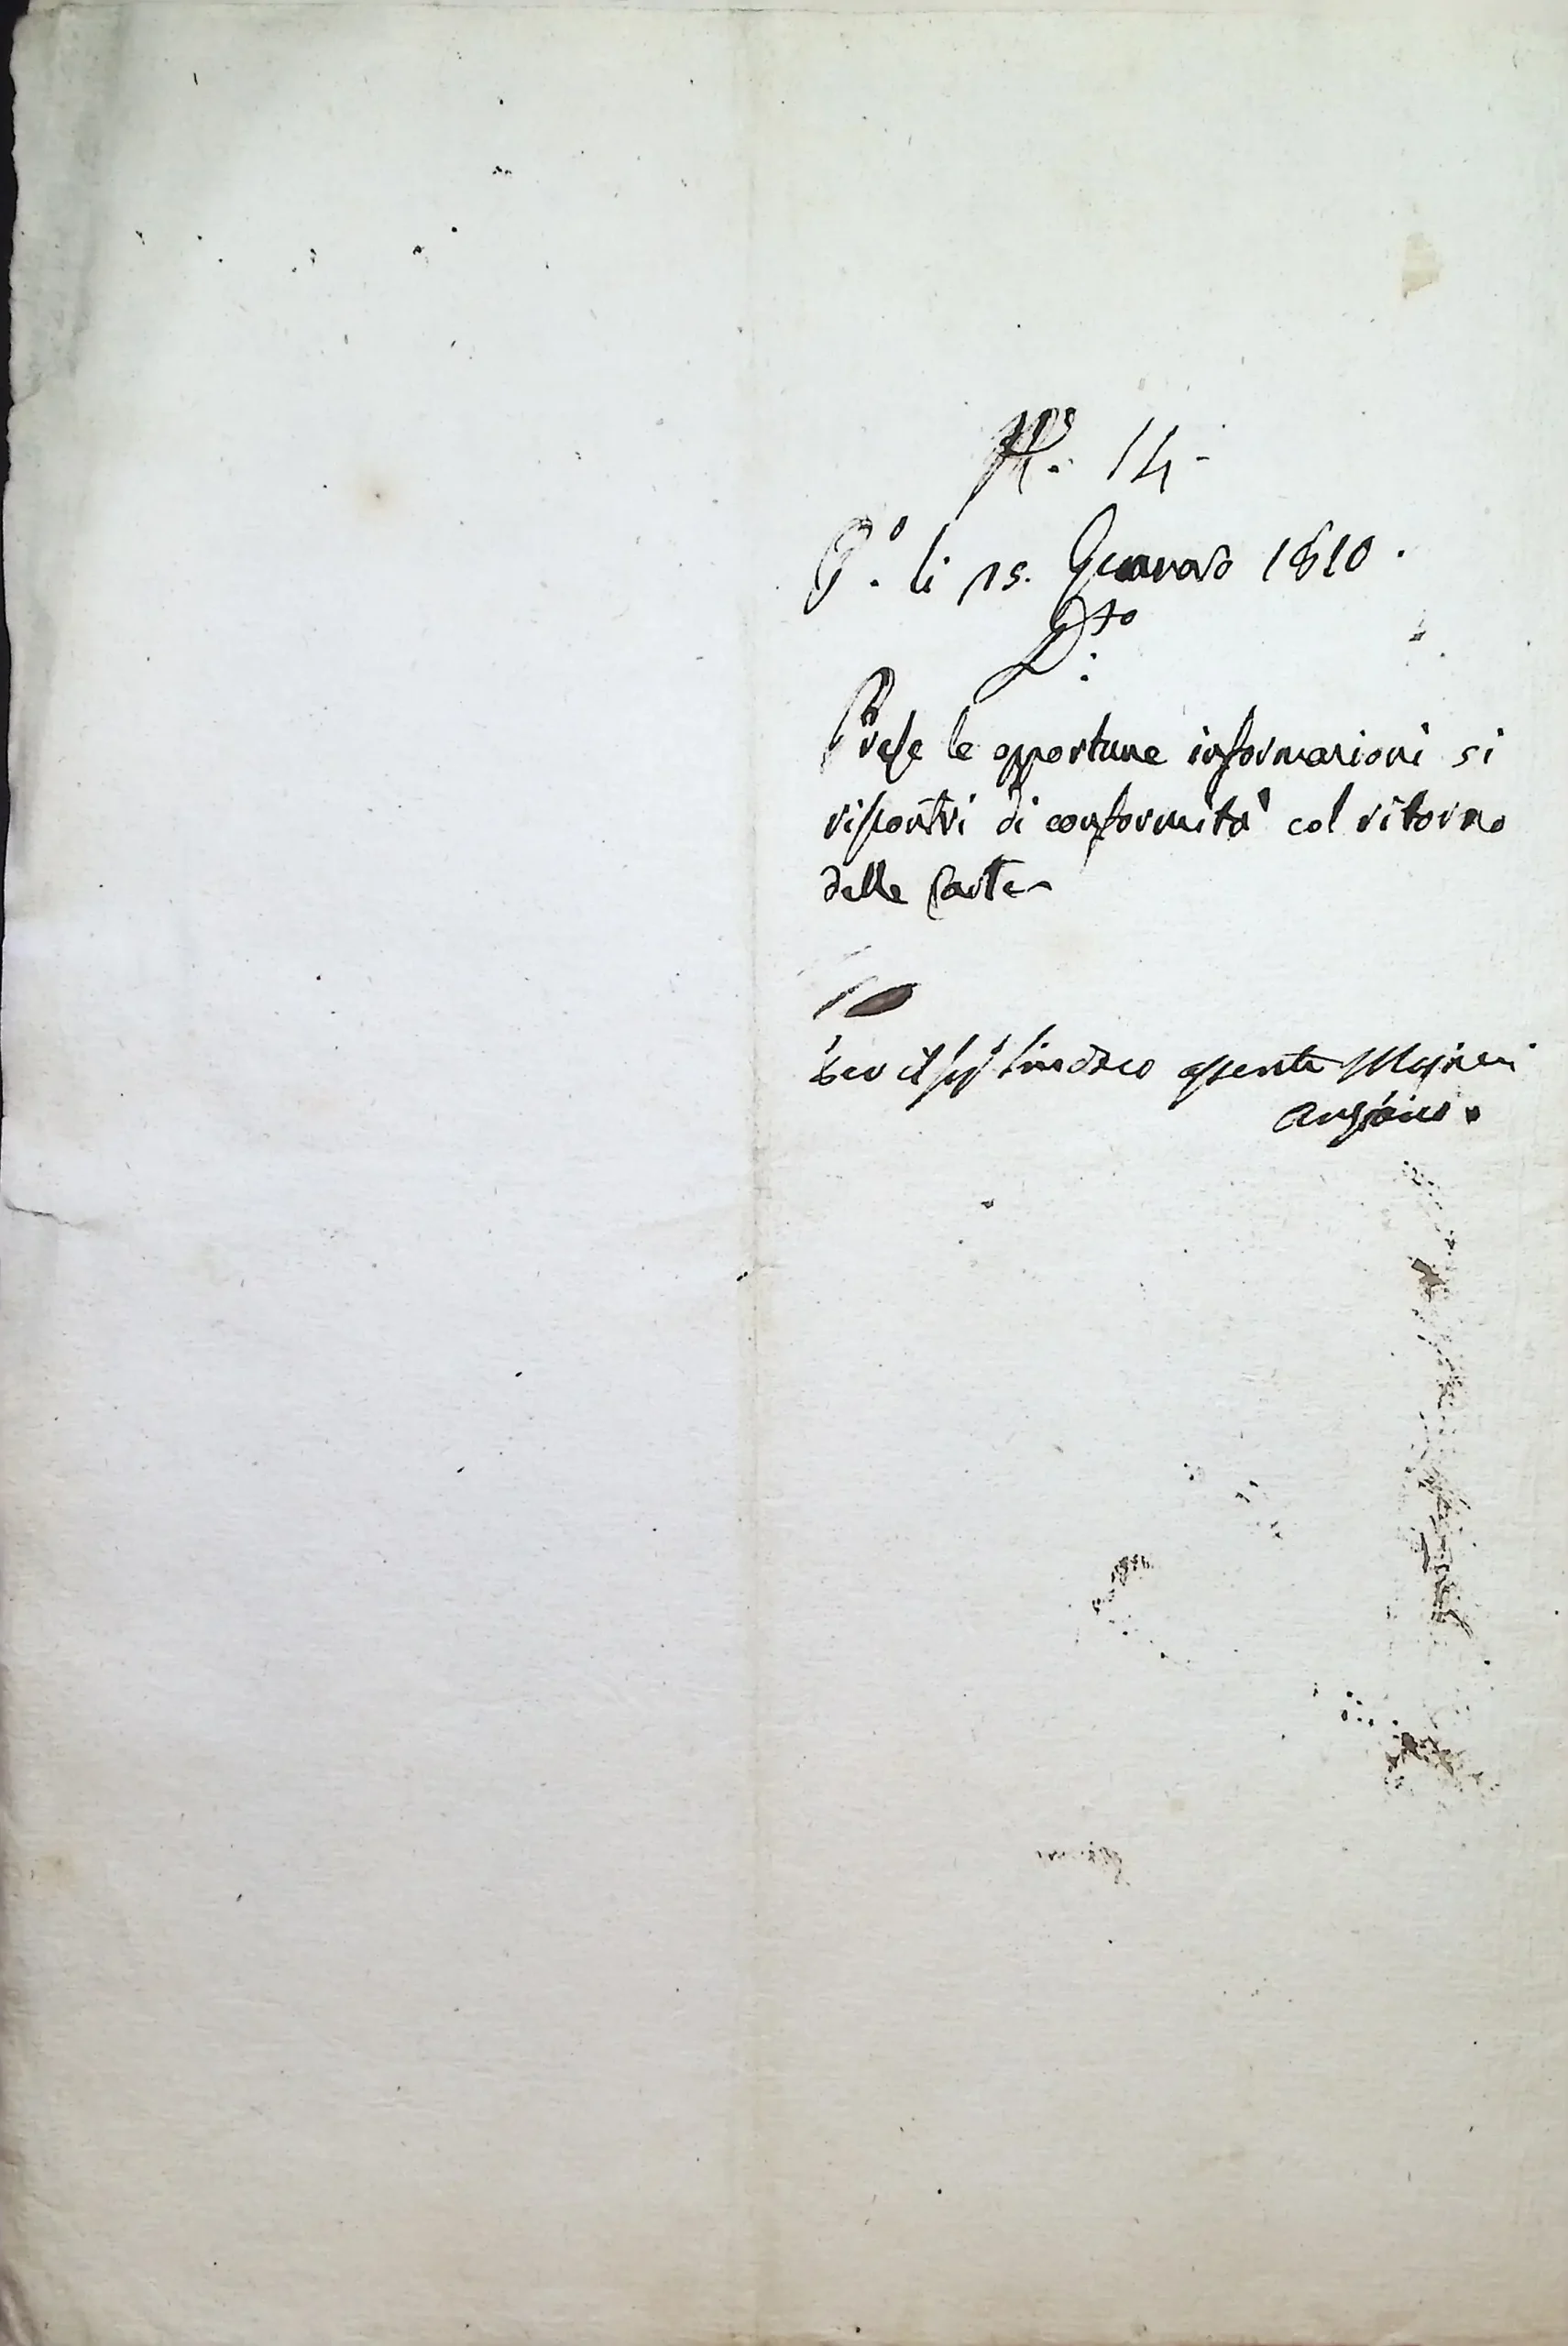 N.° 14 -
P.° li 15. Gennaro 1810.
D.to
Prese le opportune informazioni si
riscontri di conformità col ritorno
delle Carte
Per il Sindaco assente
Anziano.